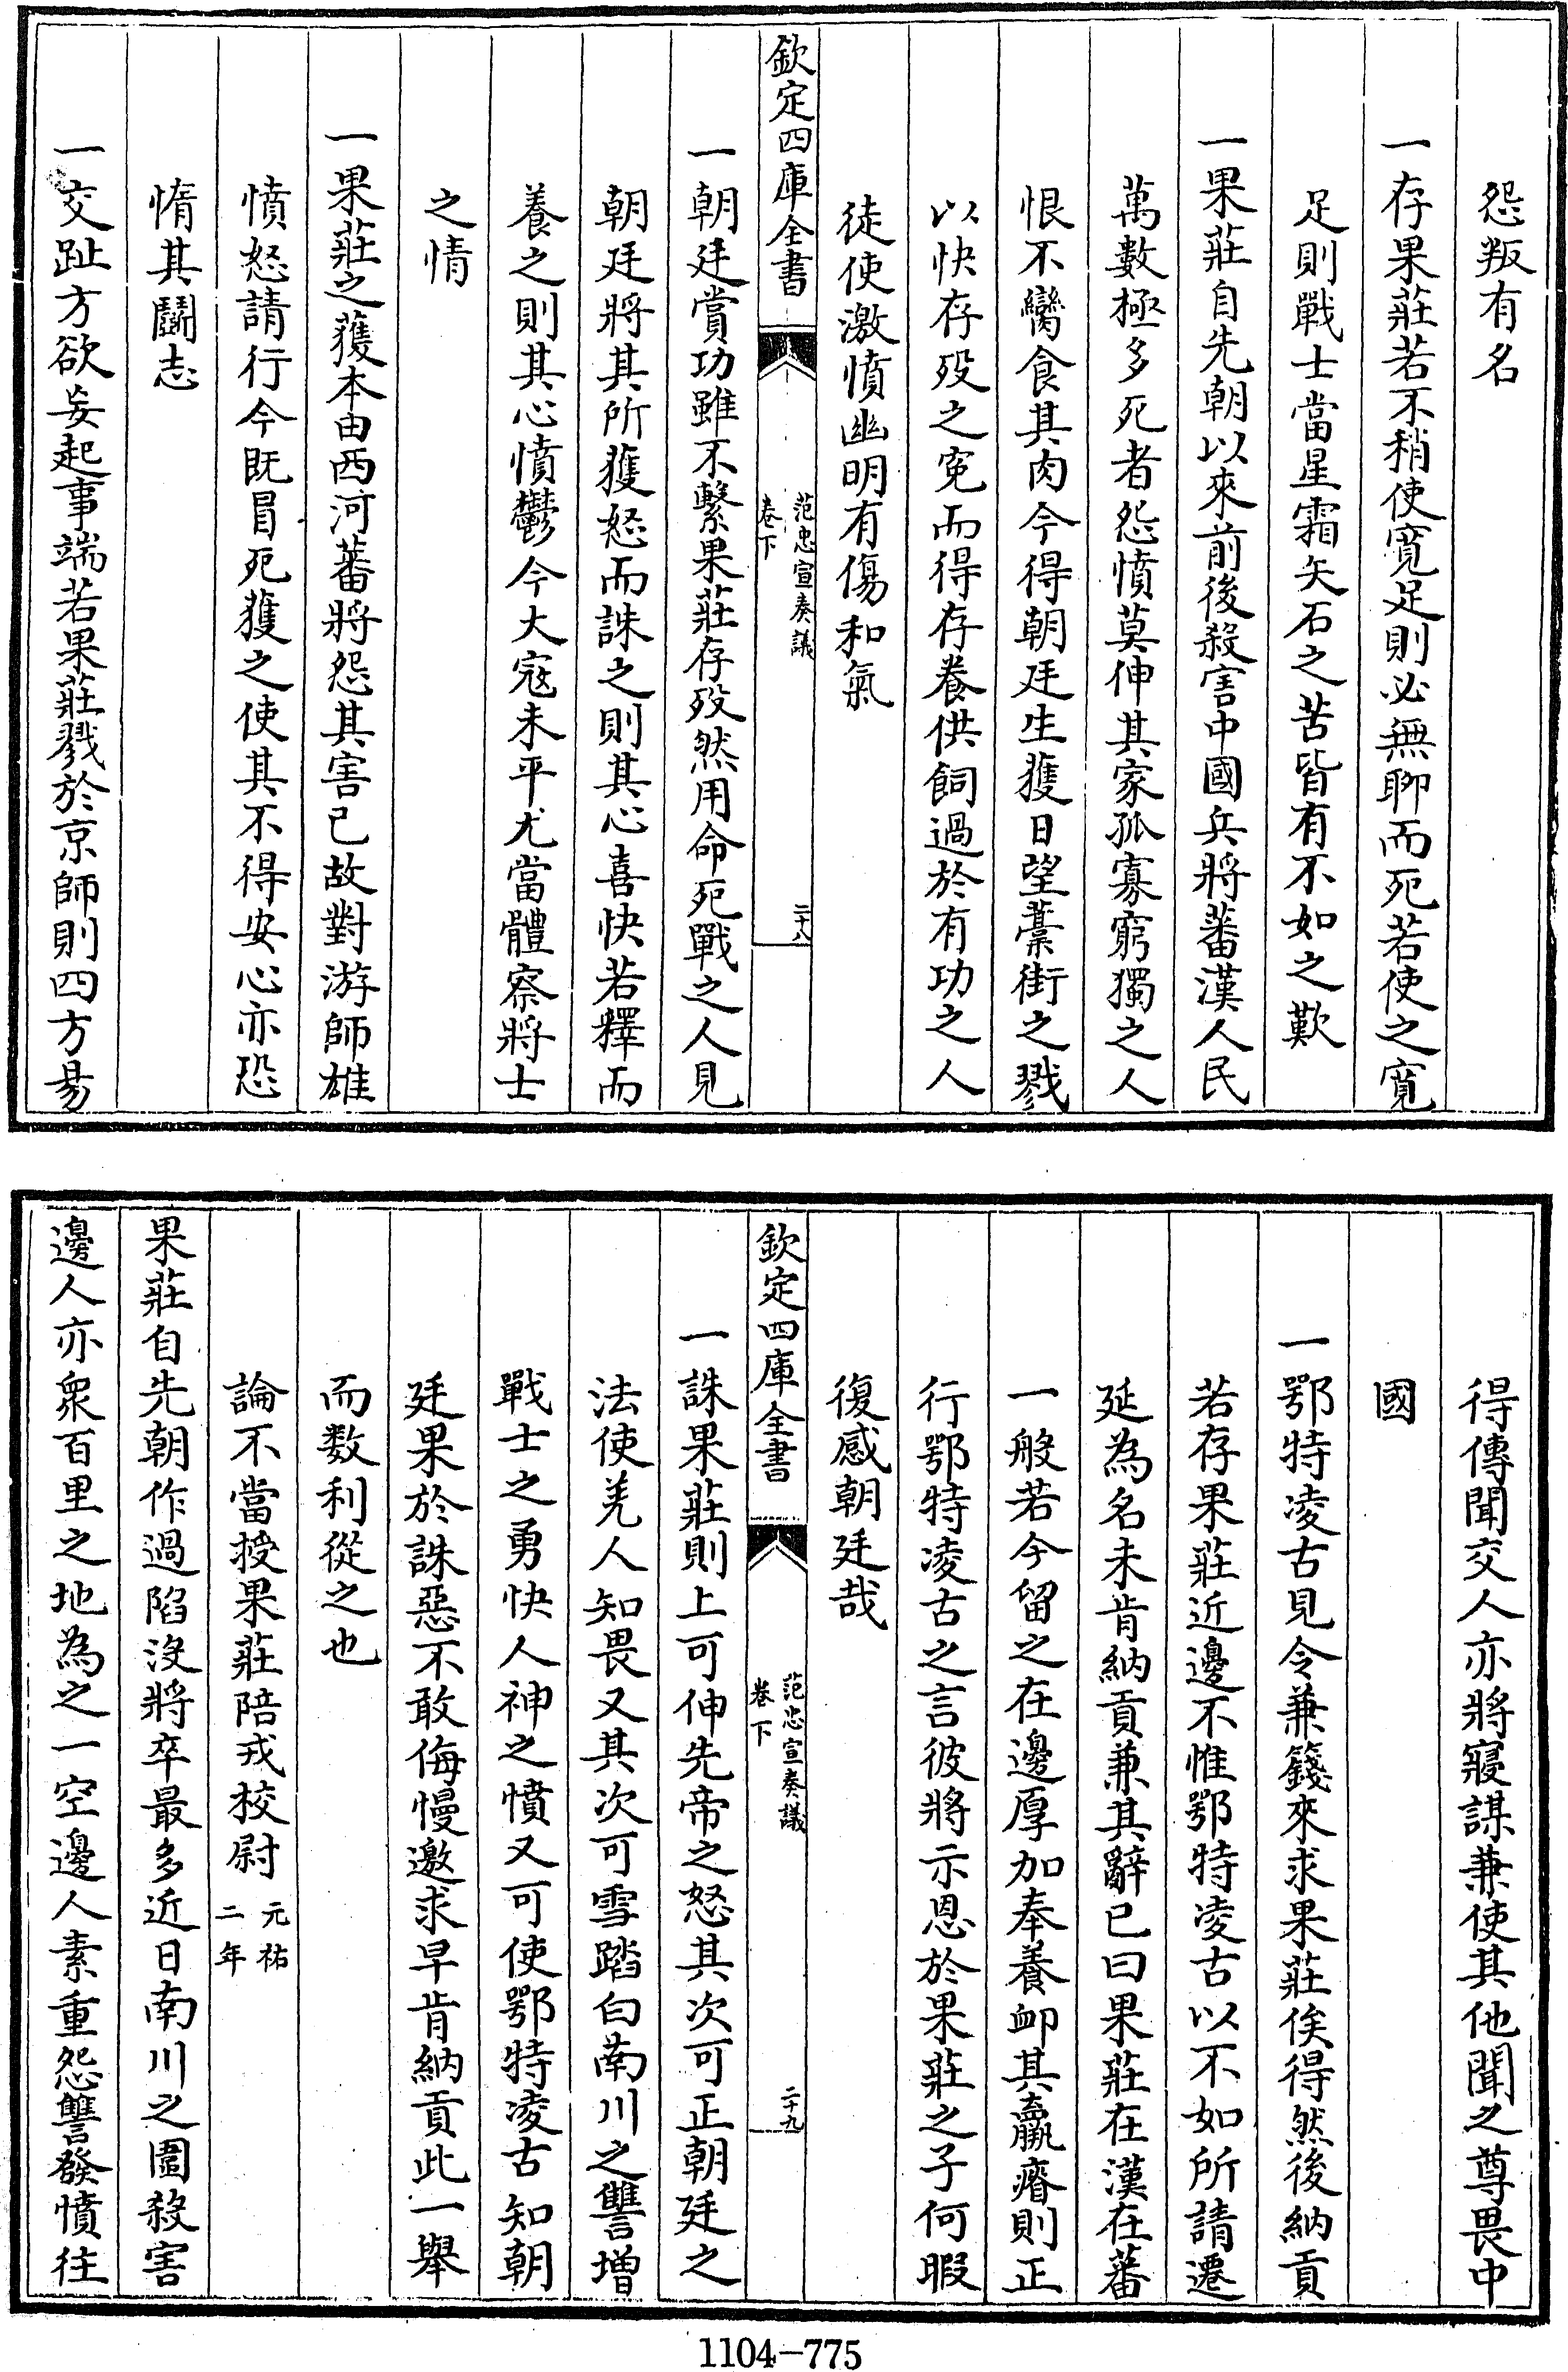 怨叛有名
一存果莊若不稍使寛足則必無聊而死若使之寛
足則戰士當星霜矢石之苦皆有不如之歎
一果莊自先朝以來前後殺害中國兵將蕃漢人民
萬數極多死者怨憤莫伸其家孤寡窮獨之人
恨不臠食其肉今得朝廷生獲日望藁街之戮
以快存殁之寃而得存養供飼過於有功之人
徒使激憤幽明有傷和氣
欽定四庫全書
范忠宣奏議
卷下
二十八
一朝廷賞功雖不繫果莊存殁然用命死戰之人見
朝廷將其所獲怒而誅之則其心喜快若釋而
養之則其心憤鬱今大冦未平尤當體察將士
之情
一果莊之獲本由西河蕃將怨其害已故對游師雄
憤怒請行今既冒死獲之使其不得安心亦恐
惰其鬭志
一交趾方欲妄起事端若果莊戮於京師則四方易
得傳聞交人亦將寢謀兼使其他聞之尊畏中
國
一鄂特凌古見令兼籛來求果莊俟得然後納貢
若存果莊近邊不惟鄂特凌古以不如所請遷
延為名未肯納貢兼其辭已曰果莊在漢在蕃
一般若今留之在邊厚加奉養䘏其羸瘠則正
行鄂特凌古之言彼將示恩於果莊之子何暇
復感朝廷哉
欽定四庫全書
范忠宣奏議
卷下
二十九
一誅果莊則上可伸先帝之怒其次可正朝廷之
法使羌人知畏又其次可雪踏白南川之讐增
戰士之勇快人神之憤又可使鄂特凌古知朝
廷果於誅惡不敢侮慢邀求早肯納貢此一舉
而数利從之也
論不當授果莊陪戎校尉元祐二年
果莊自先朝作過陷沒將卒最多近日南川之圍殺害
邊人亦衆百里之地為之一空邊人素重怨讐發憤往
1104-775